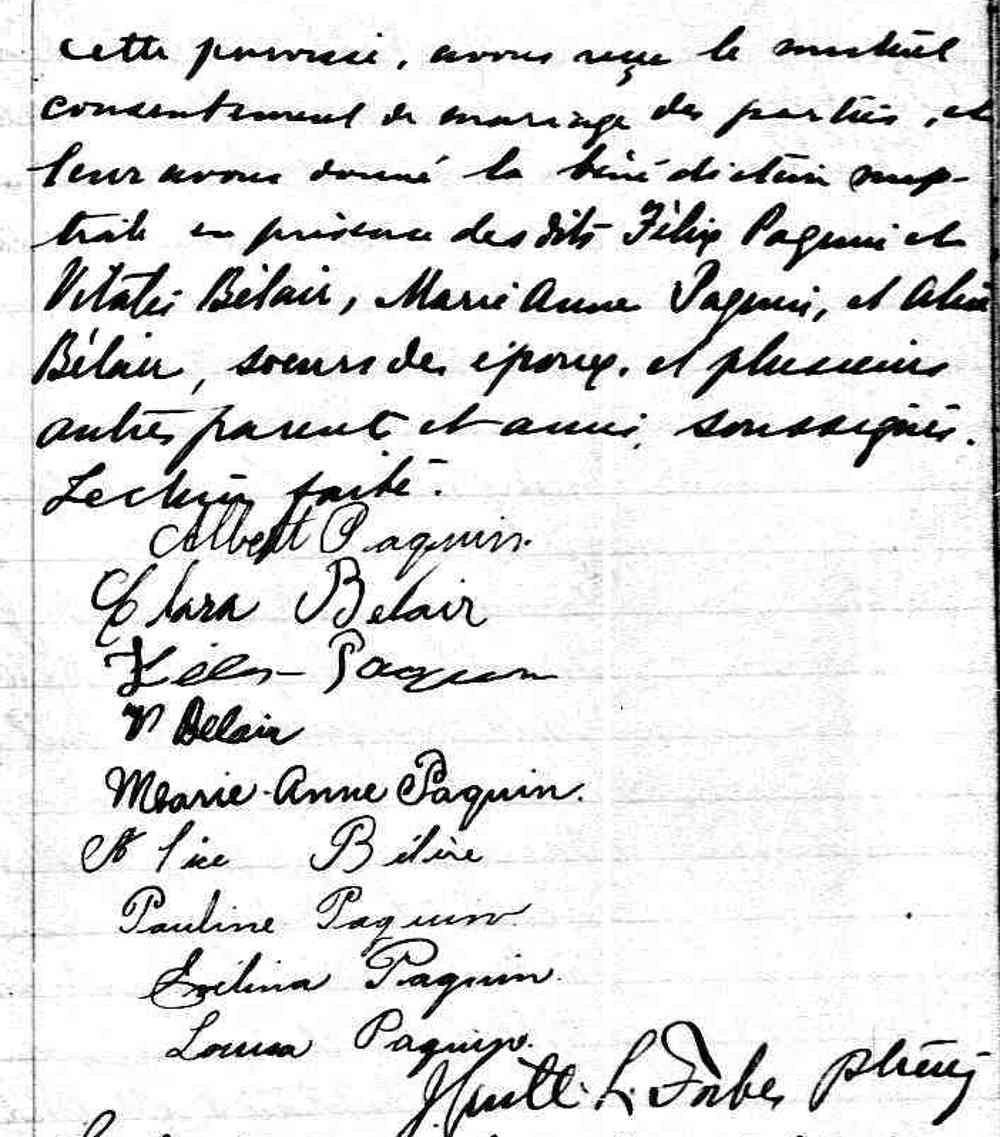 cette paroisse, avons reçu le mutuel
consentement de mariage des parties, et
leur avons donné la bénédiction nup-
tiale en présence des dits Félix Paquin et
Vitalis Bélair, Marie Anne Paquin, et Alice
Bélair, soeurs des époux, et plusieurs
autres parents et amis, soussignés.
Lecture faite.
Albert Paquin.
Clara Belair
Félix Paquin
V Belair
Marie-Anne Paquin.
Alice Béläre
Pauline Paquin
Evelina Paquin.
Louisa Paquin.
L. Forbes ptre